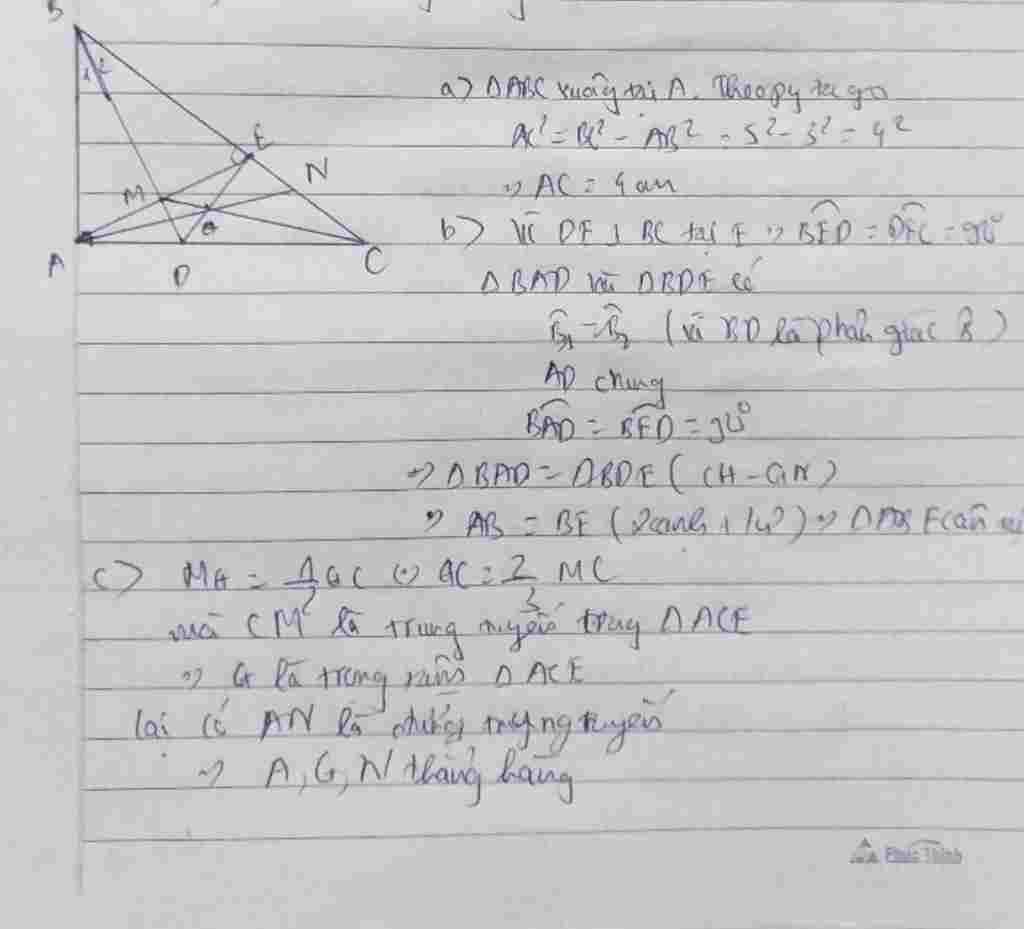 B
1 2
E
N
M
G
A
D
C
a) ΔABC vuông tại A. Theo py ta go
AC² = BC² - AB² = 5² - 3² = 4²
=> AC = 4 cm
b) Vì DE ⊥ BC tại E => BED = DEC = 90°
ΔBAD và ΔBDE có
B₁ = B₂ (vì BD là phân giác B)
AD chung
BAD = BED = 90°
=> ΔBAD = ΔBDE (CH - GN)
=> AB = BE (2 cạnh t/ư) => ΔABE cân
c) MG = 1/2 GC (=) GC = 2/3 MC
mà CM là trung tuyến trong ΔACE
=> G là trọng tâm ΔACE
lại có AN là đường trung tuyến
=> A, G, N thẳng hàng
Phúc Thịnh